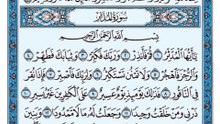 سورة المدثر
بسم الله الرحمن الرحيم
يأيها المدثر ١ قم فأنذر ٢ وربك فكبر ٣ وثيابك فطهر ٤
والرجز فاهجر ٥ ولا تمنن تستكثر ٦ ولربك فاصبر ٧ فإذا نقر
في الناقور ٨ فذلك يومئذ يوم عسير ٩ على الكافرين غير يسير ١٠
ذرني ومن خلقت وحيدا ١١ وجعلت له مالا ممدودا ١٢